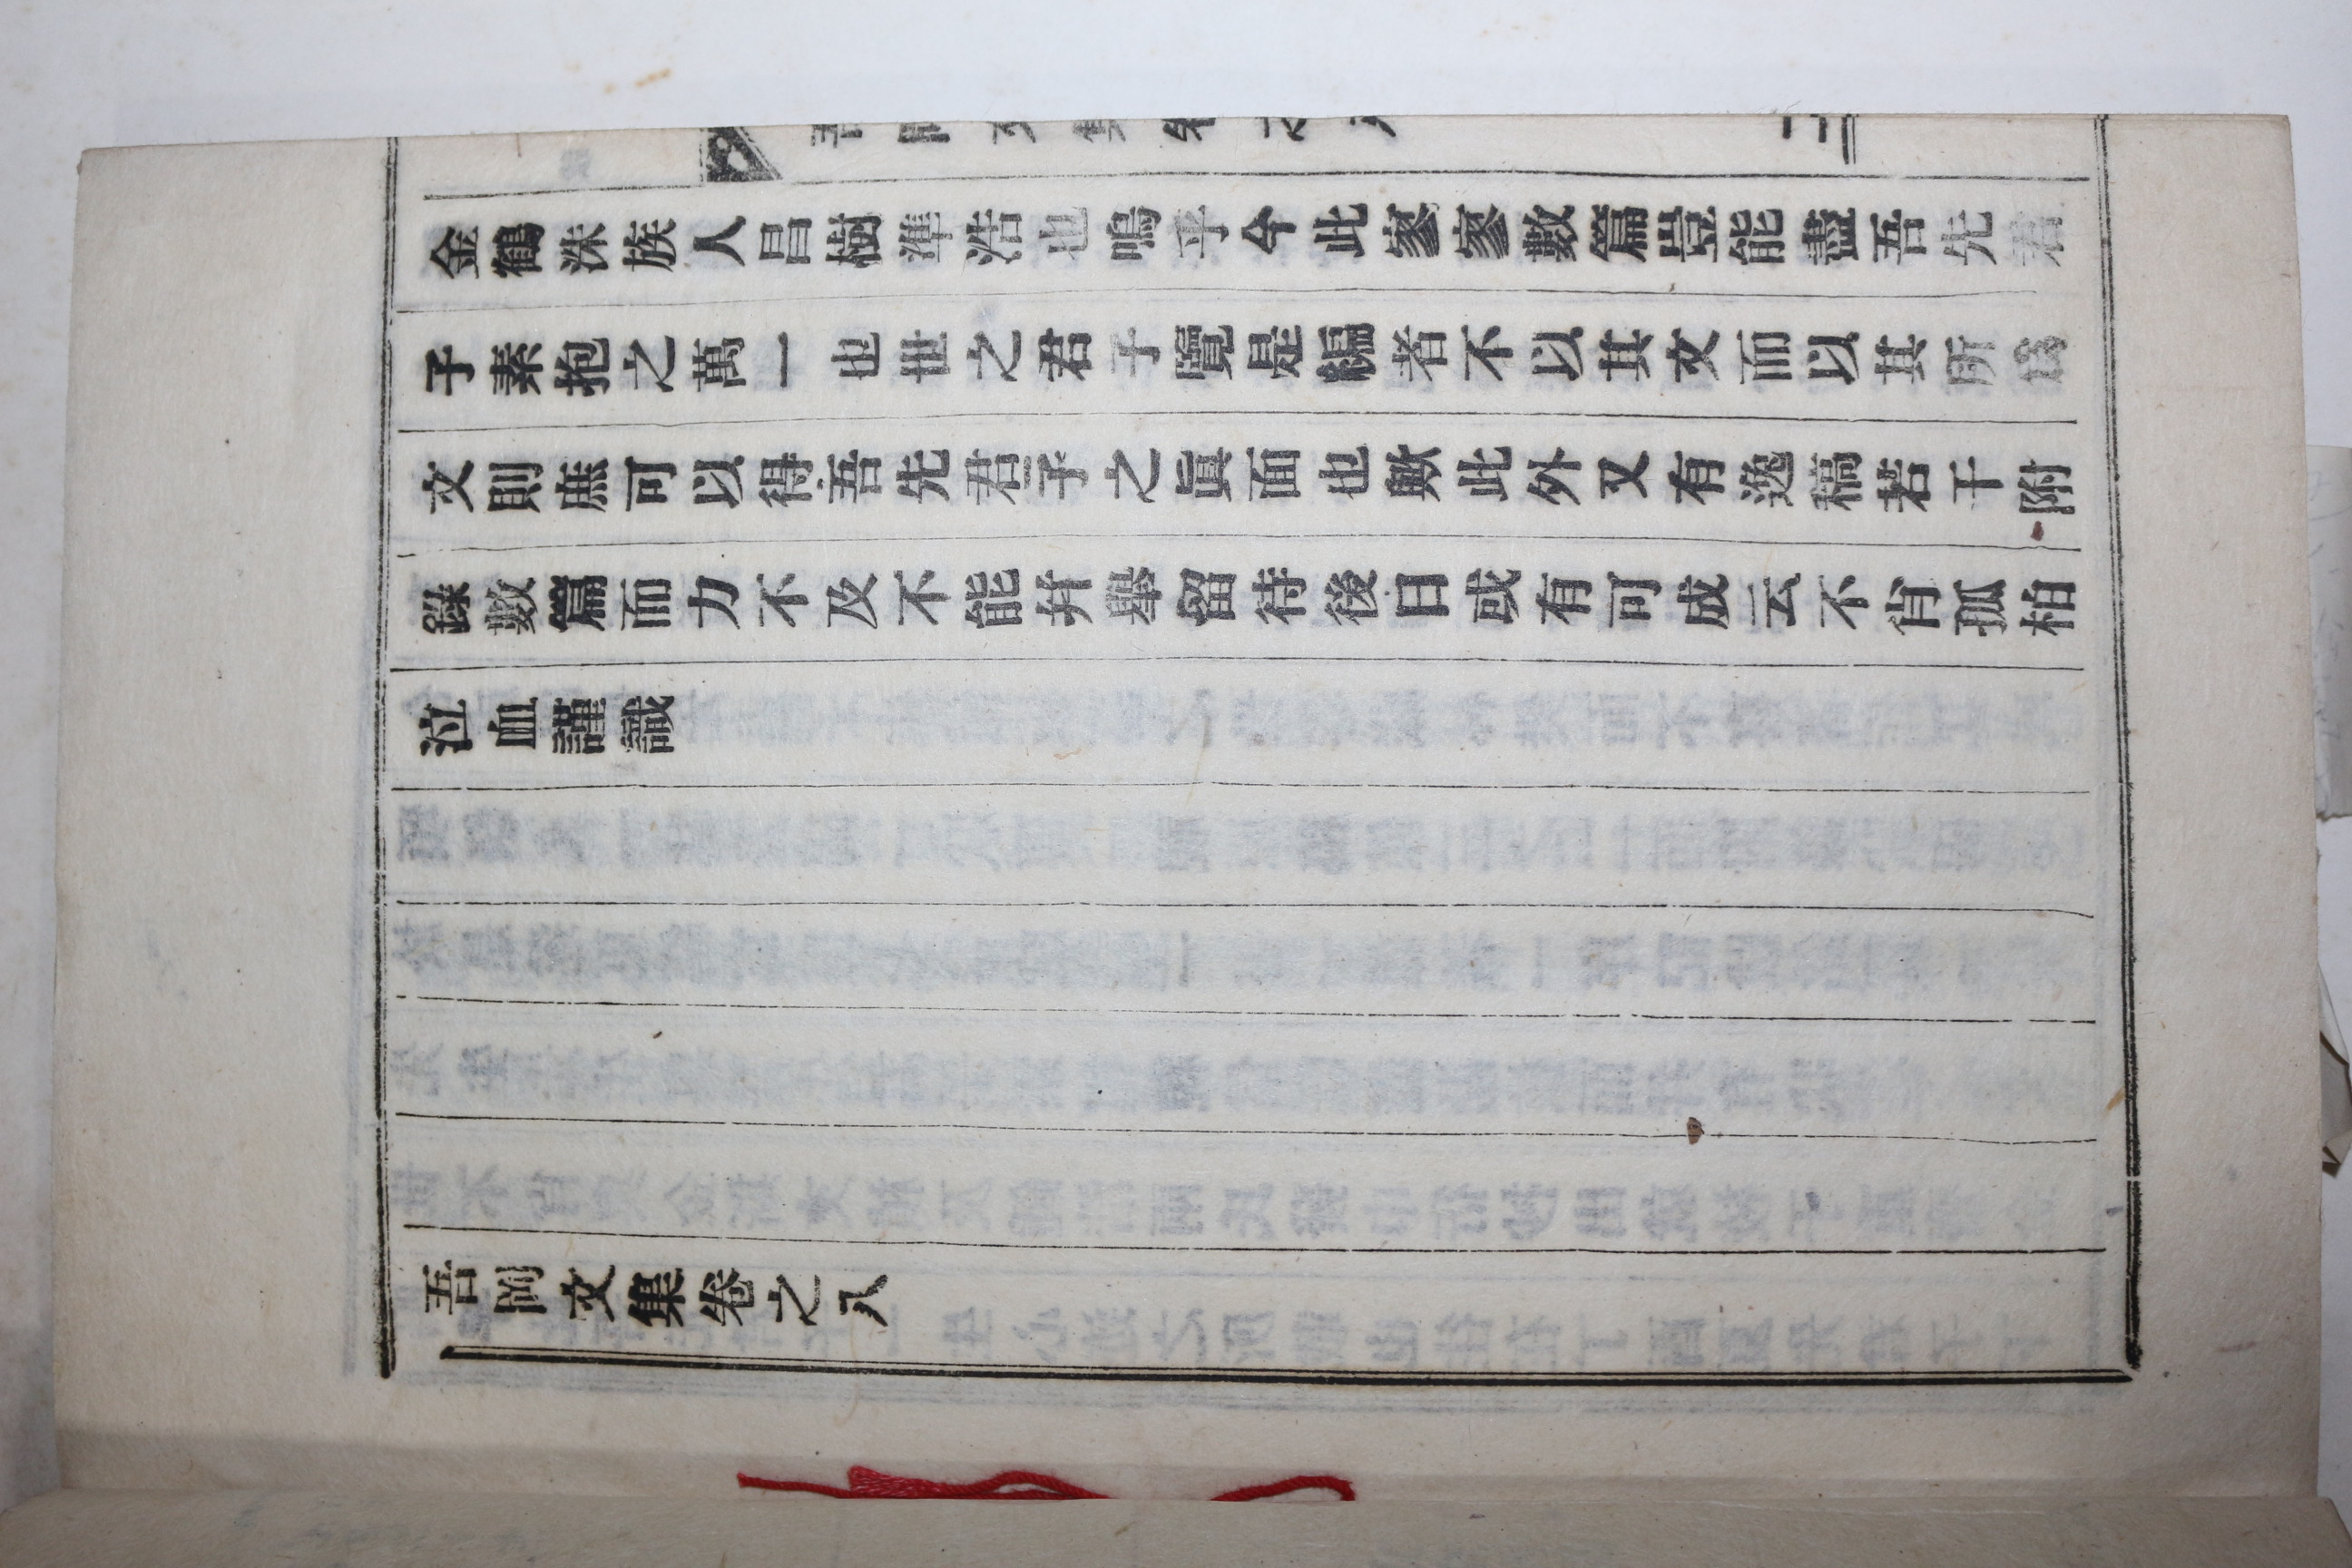 吾岡文集卷之八
二
金鶴洙族人昌樹準浩也嗚呼今此寥寥數篇豈能盡吾先君
子素抱之萬一也世之君子覽是編者不以其文而以其所爲
文則庶可以得吾先君子之眞面也歟此外又有逸稿若干附
錄數篇而力不及不能幷舉留待後日或有可成云不肖孤柏
泣血謹識
吾岡文集卷之八